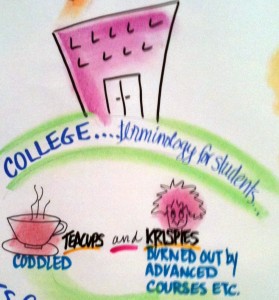 COLLEGE.... terminology for students...
TEACUPS and KRISPIES
CODDLED
BURNED OUT by
ADVANCED
COURSES ETC.